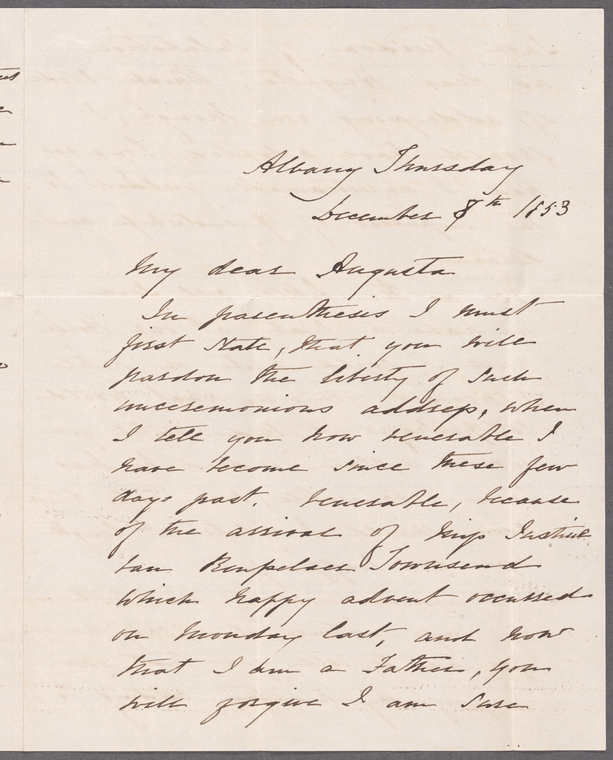 Albany Thursday
December 8th 1853
My dear Augusta
In parenthesis I must
first state, that you will
pardon the liberty of such
unceremonious address, when
I tell you how venerable I
have become since these few
days past. Venerable, because
of the arrival of Miss Justine
Van Renselaer Townsend
which happy advent occurred
on Monday last, and now
that I am a Father, you
will forgive I am sure